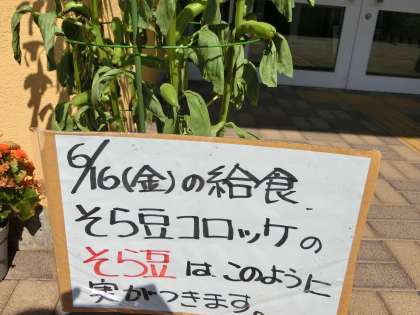 6/16(金)の給食
そら豆コロッケの
そら豆はこのように
実がつきます。